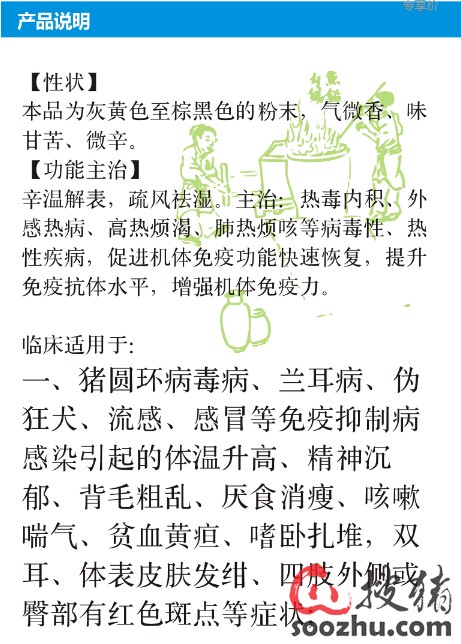 专享价
产品说明
【性状】
本品为灰黄色至棕黑色的粉末，气微香、味
甘苦、微辛。
【功能主治】
辛温解表，疏风祛湿。主治：热毒内积、外
感热病、高热烦渴、肺热烦咳等病毒性、热
性疾病，促进机体免疫功能快速恢复，提升
免疫抗体水平，增强机体免疫力。
临床适用于:
一、猪圆环病毒病、兰耳病、伪
狂犬、流感、感冒等免疫抑制病
感染引起的体温升高、精神沉
郁、背毛粗乱、厌食消瘦、咳嗽
喘气、贫血黄疸、嗜卧扎堆，双
耳、体表皮肤发绀、四肢外侧或
臀部有红色斑点等症状
搜猪
soozhu.com